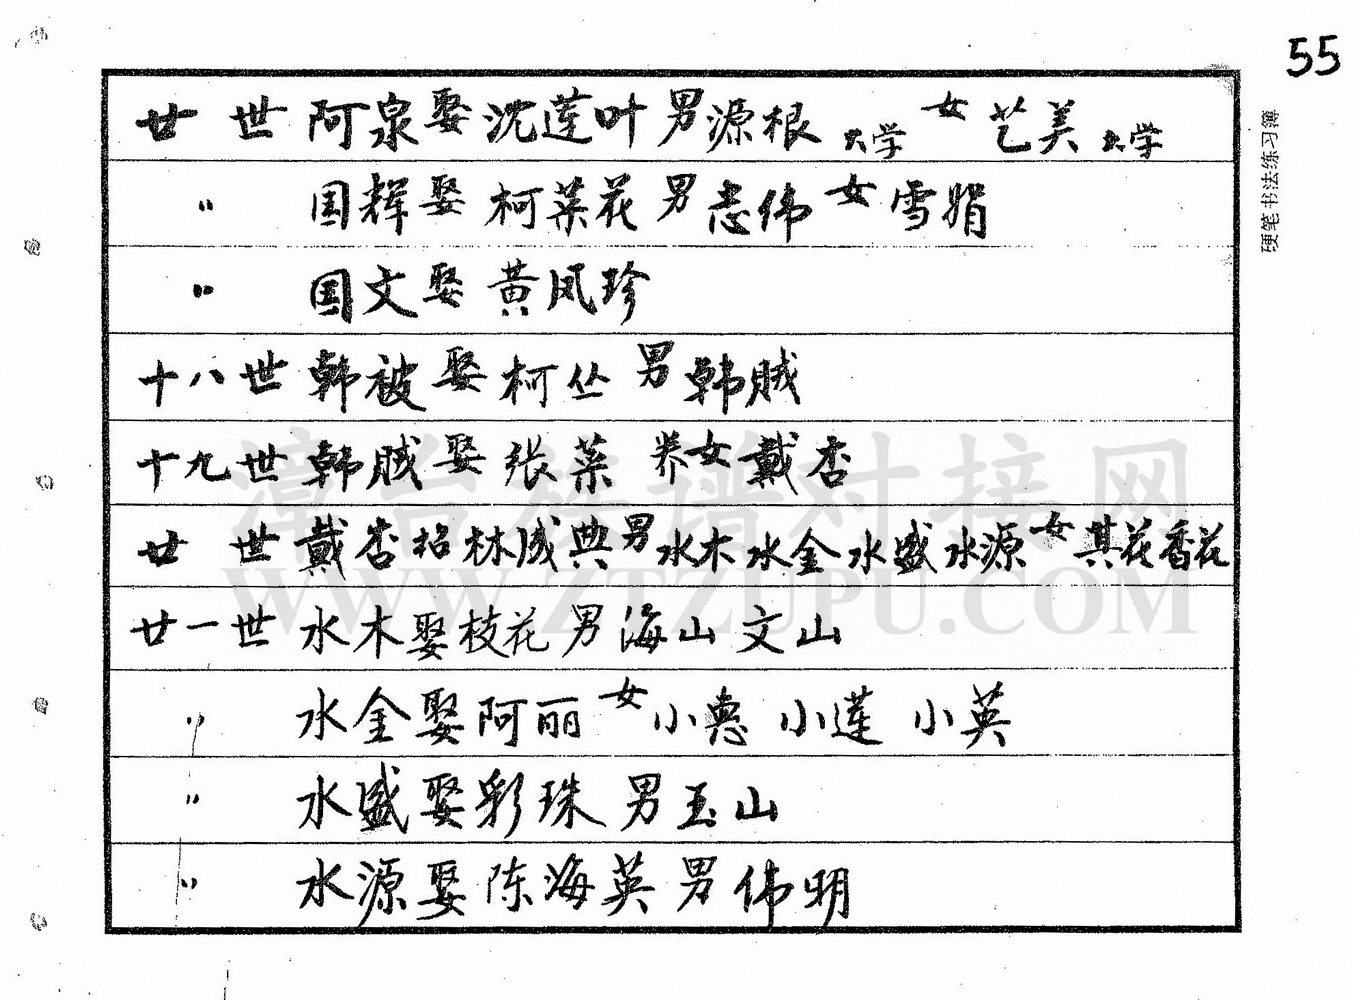 55
廿 世 阿泉娶沈莲叶男源根 大学 女 艺美 大学
〃 国辉娶柯菜花男志伟女雪娟
〃 国文娶黄凤珍
十八世韩被娶柯丝男韩贼
十九世韩贼娶张菜养女戴杏
廿 世戴杏招林成典男水木水金水盛水源女其花香花
廿一世水木娶枝花男海山文山
〃 水金娶阿丽女小惠小莲小英
〃 水盛娶彩珠男玉山
〃 水源娶陈海英男伟明
硬笔书法练习簿
漳台族谱对接网
WWW.ZTZUPU.COM